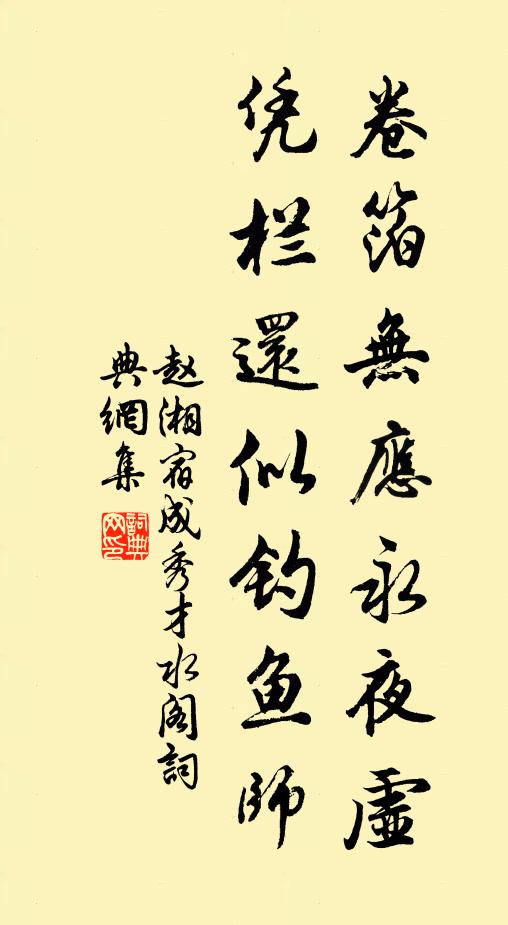 卷箔無應永夜虛
凭栏還似钓鱼師
赵湘宿成秀才水阁詞
典網集
詞典網印